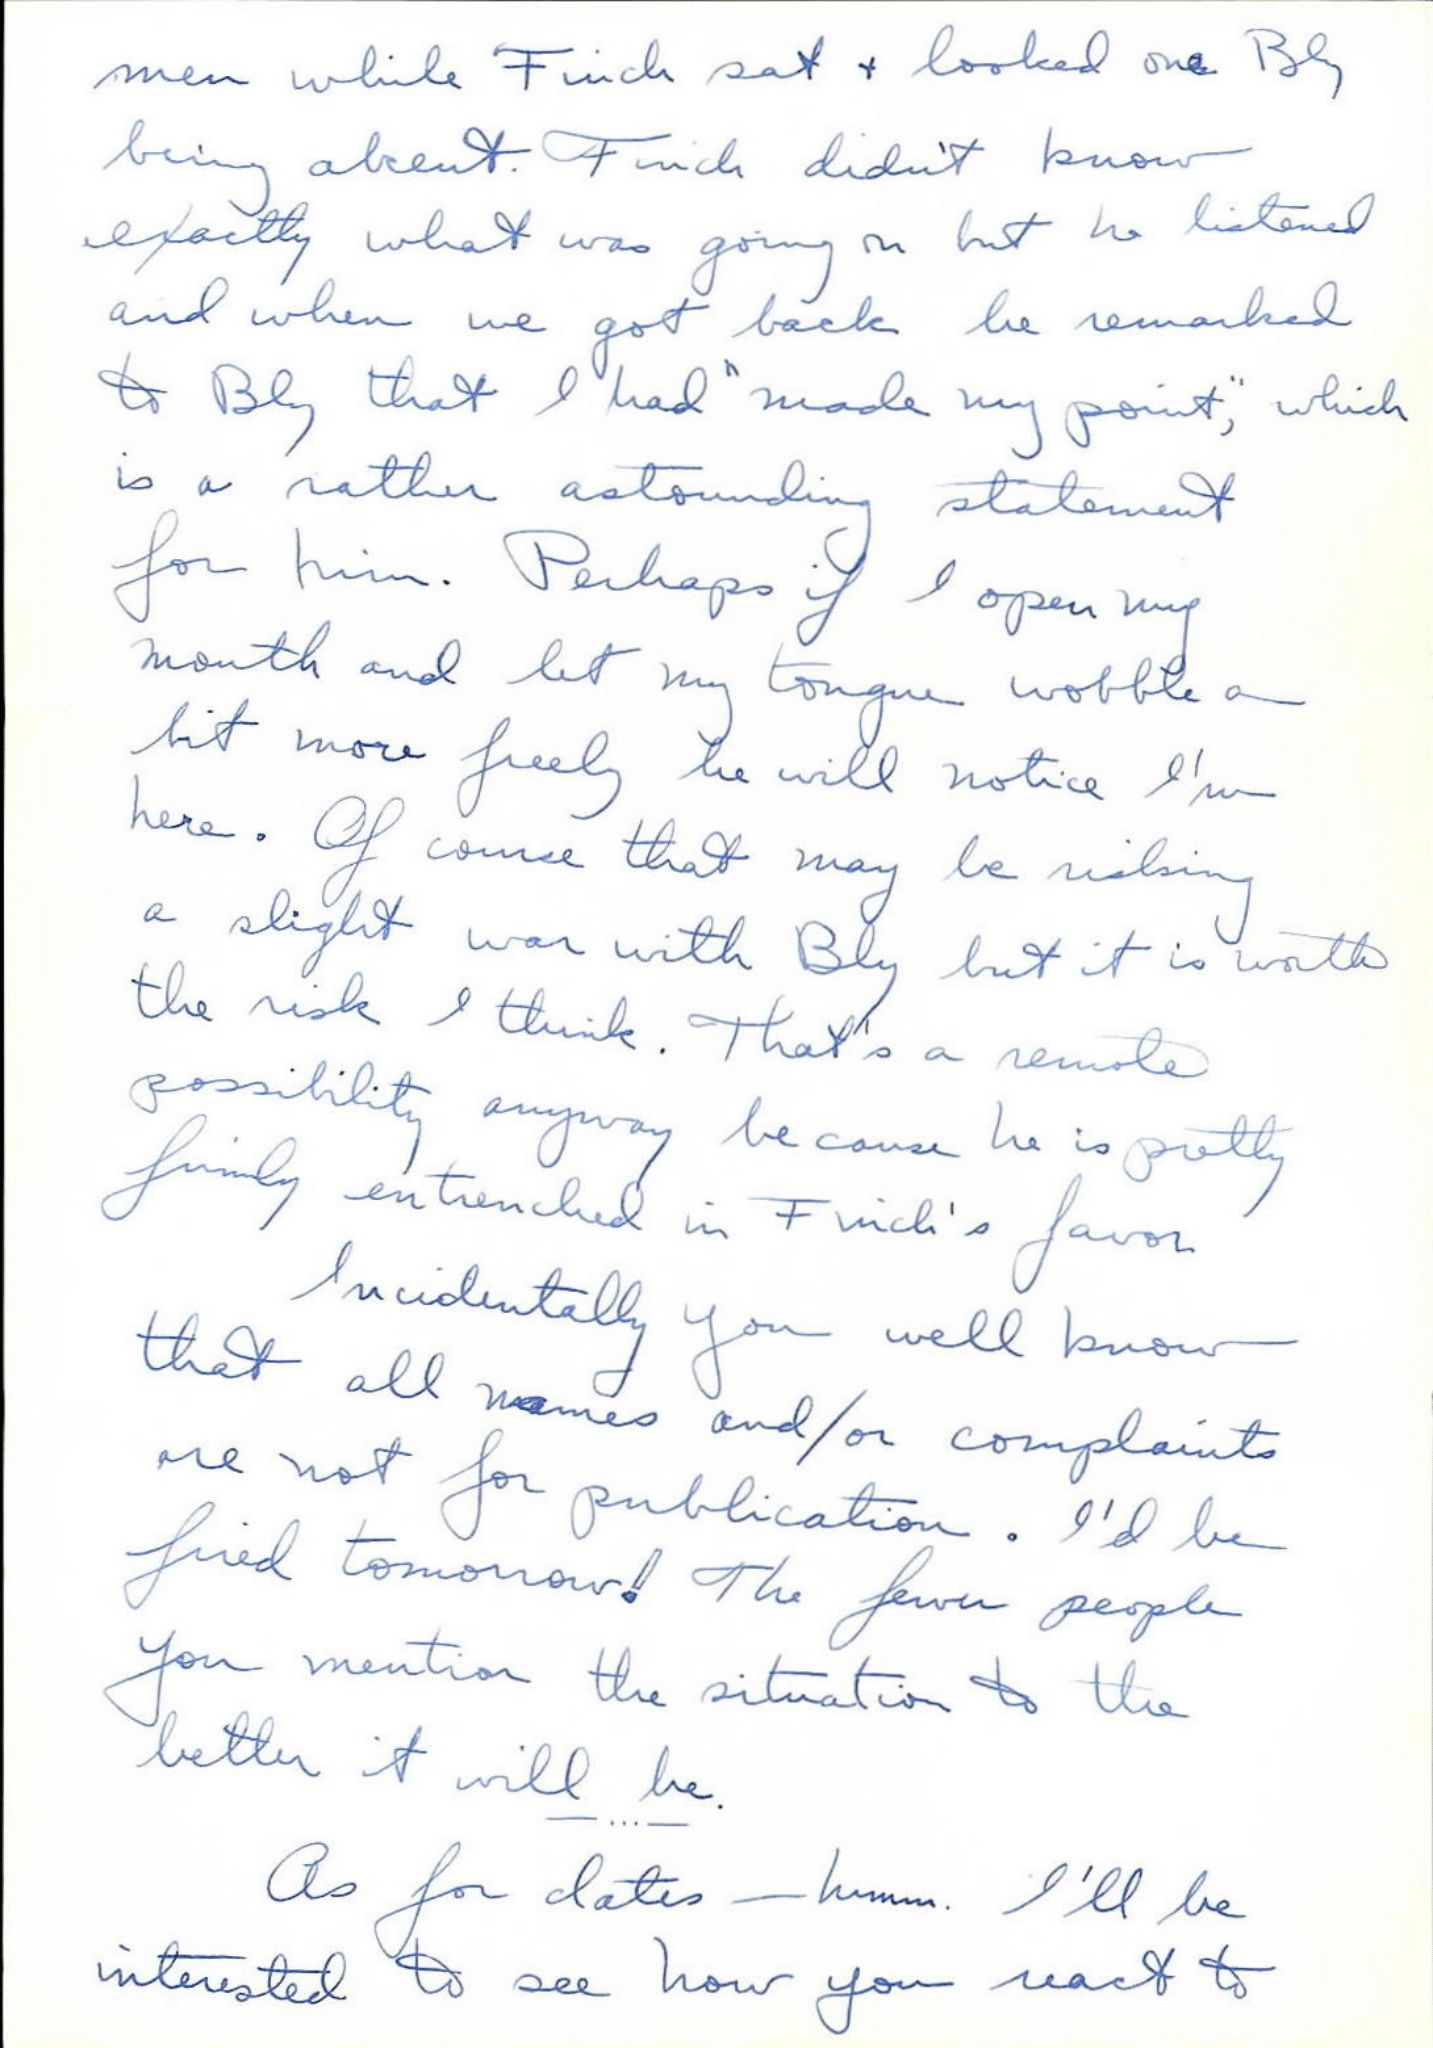 men while Finch sat + looked one Bly
being absent. Finch didn't know
exactly what was going on but he listened
and when we got back he remarked
to Bly that I had "made my point," which
is a rather astounding statement
for him. Perhaps if I open my
mouth and let my tongue wobble a
bit more freely he will notice I'm
here. Of course that may be risking
a slight war with Bly but it is worth
the risk I think. That's a remote
possibility anyway because he is pretty
firmly entrenched in Finch's favor
Incidentally you well know
that all names and/or complaints
are not for publication. I'd be
fired tomorrow! The fewer people
you mention the situation to the
better it will be.
— ... —
As for dates — hmmm. I'll be
interested to see how you react to